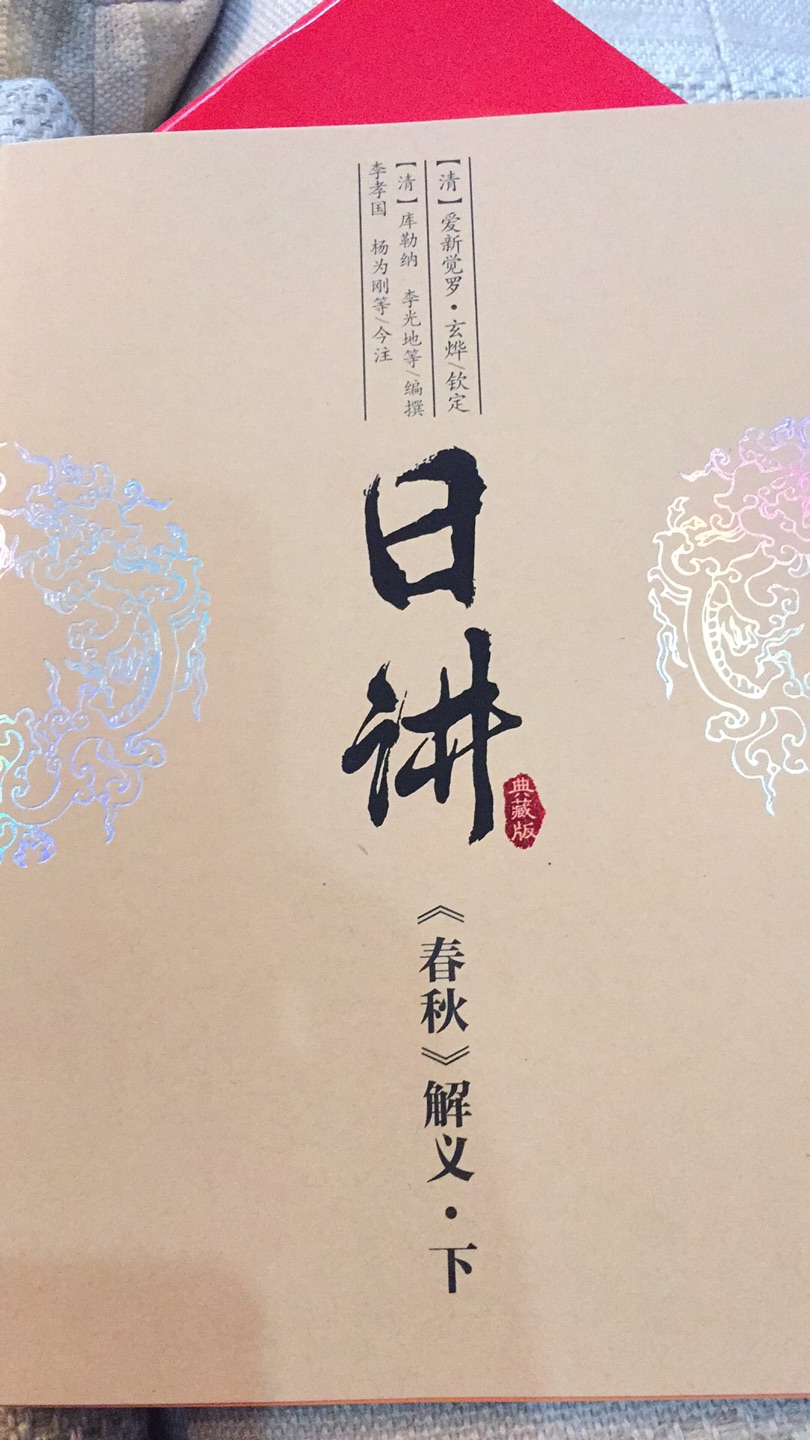 【清】爱新觉罗·玄烨/钦定
【清】库勒纳 李光地等/编撰
李孝国 杨为刚等/今注
日讲
典藏版
《春秋》解义·下